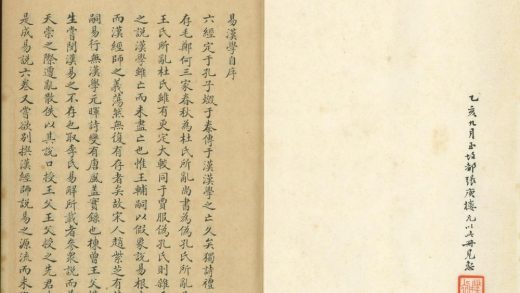 乙亥九月
張庚樓兄以此冊見
易漢學自序
六經定于孔子燬于秦傳于漢漢學之亡久矣獨詩禮
存毛鄭何三家春秋為杜氏所亂尚書為偽孔氏所亂
王氏所亂杜氏雖有更定大較同于賈服偽孔氏則雜
之說漢學雖亡而未盡亡也惟王輔嗣以假象說易根
而漢經師之義蕩然無復有存者矣故宋人趙紫芝有
嗣易行無漢學元暉詩變有唐風蓋實錄也棟曾王父
生嘗閔漢易之不存也取李氏易解所載者參眾說而
天崇之際遭亂散佚以其說口授王父王父授之先君
是成易說六卷又嘗欲別撰漢經師說易之源流而未